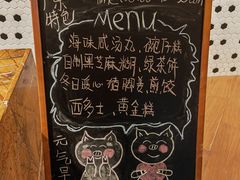 特色
Menu
海味咸汤丸、碗仔糕
日州黑芝麻糊、绿茶饼
冬日暖心猪脚姜、煎饺
西多士、黄金糕
元气